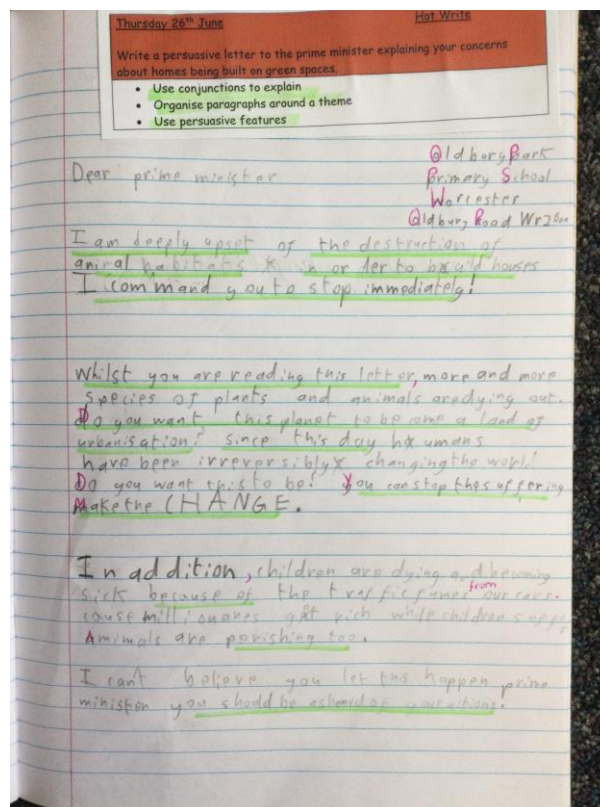 Thursday 26th June
Hot Write
Write a persuasive letter to the prime minister explaining your concerns
about homes being built on green spaces.
• Use conjunctions to explain
• Organise paragraphs around a theme
• Use persuasive features
Oldbury Park
Primary School
Worcester
Oldbury Road
Dear prime minister
I am deeply upset of the destruction of
animal habitats in order to build houses
I command you to stop immediately!
Whilst you are reading this letter, more and more
species of plants and animals are dying out.
Do you want this planet to become a land of
urbanisation? Since this day humans
have been irreversibly changing the world!
Do you want this to be! You can stop the suffering
Make the CHANGE.
In addition, children are dying and becoming
sick because of the traffic fumes from our cars.
cause millionares get rich while children suffer
Amimals are perishing too.
I can't believe you let this happen prime
minister you should be ashamed of your actions.